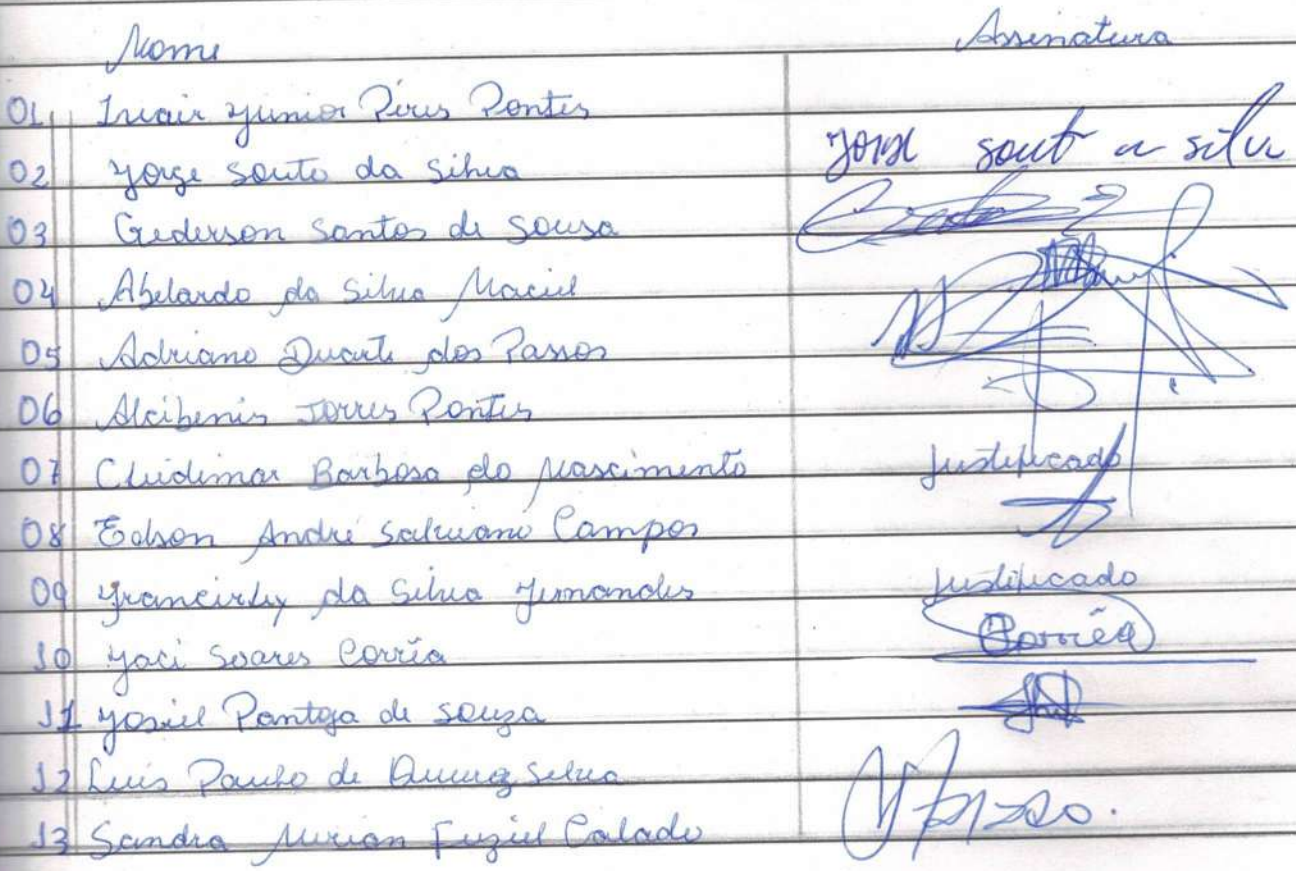 Nome Assinatura
01 Junior Pires Pontes
02 Jorge Souto da Silva Jorge Sout a silva
03 Gederson Santos de Sousa
04 Abelardo da Silva Maciel
05 Adriano Duarte dos Passos
06 Alcibenis Torres Pontes
07 Cleidimar Barbosa do Nascimento Justificado
08 Edson André Salviano Campos
09 da Silva Fernandes Justificado
10 Jaci Soares Corrêa Corrêa
11 Josiel Pantoja de Souza
12 Luis Paulo de Silva
13 Sandra Mirian Calado